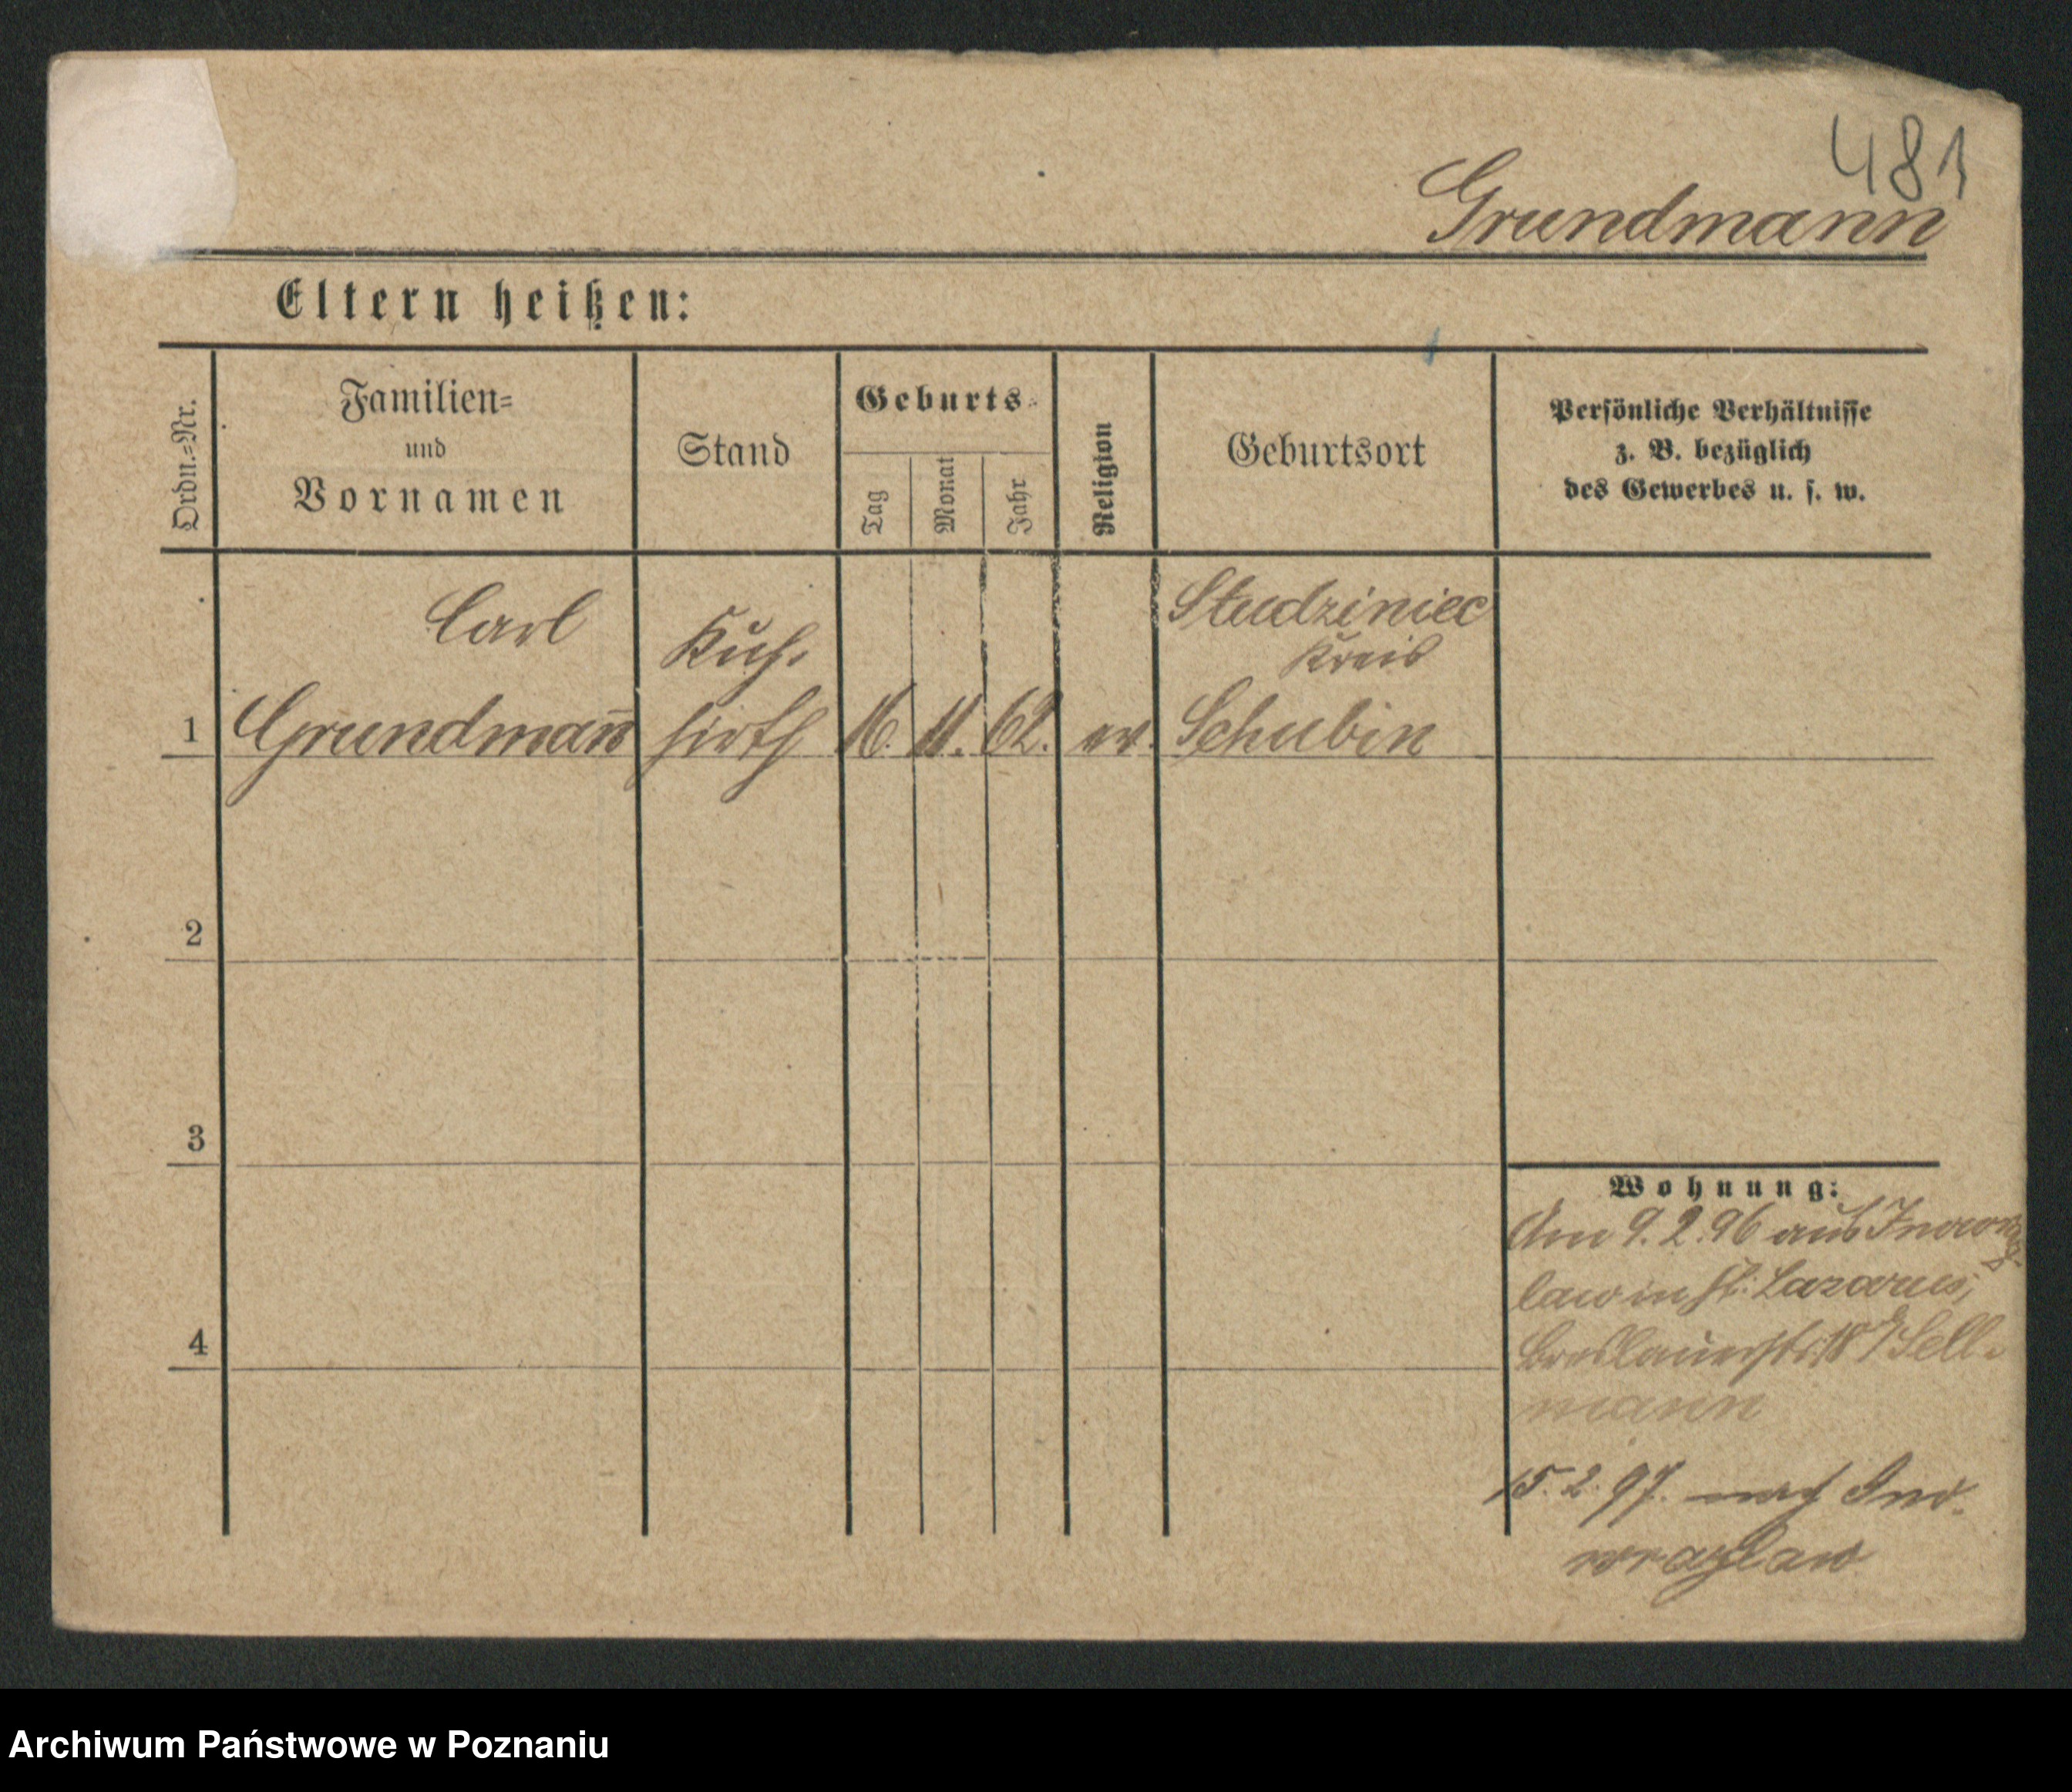 481
Grundmann
Eltern heißen:
Ordn.=Nr.
Familien=
und
Vornamen
Stand
Geburts=
Tag
Monat
Jahr
Religion
Geburtsort
Persönliche Verhältnisse
z. B. bezüglich
des Gewerbes u. s. w.
Carl
Grundmann̄
Kuh-
hirth
16. 11. 62. ev.
Studziniec
Kreis
Schubin
1
2
3
4
Wohnung:
Am 9. 2. 96 aus Inowraz-
law in St. Lazarus,
Breslauerstr. 18 Sell-
mann
15. 2. 97. nach Ino-
wrazlaw
Archiwum Państwowe w Poznaniu